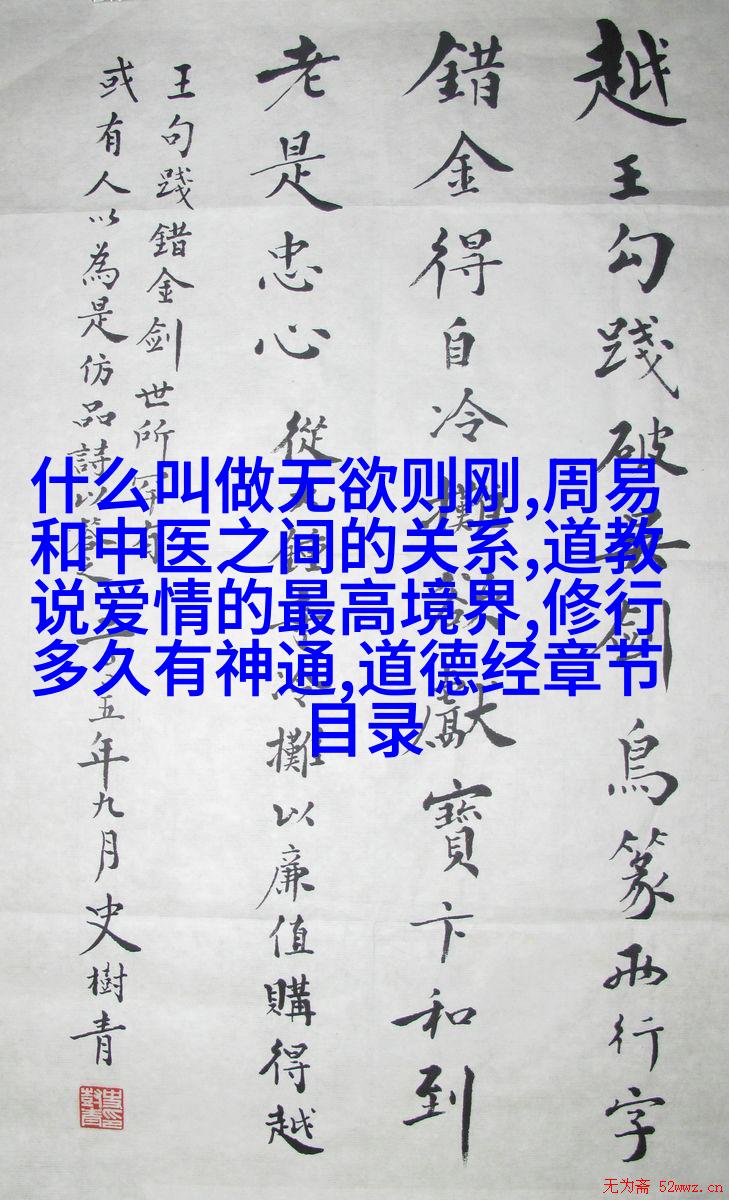 越王勾踐破劍鳥篆兩行字
錯金得自冷攤欲獻寶卞和到
老是忠心 從鐘寺冷攤以廉值購得越
王句踐錯金剑世所罕有
或有人以為是仿品詩以答之 二〇〇五年九月史樹青
什么叫做无欲则刚,周易
和中医之间的关系,道教
说爱情的最高境界,修行
多久有神通,道德经章节
目录
无为斋 52wwz.cn